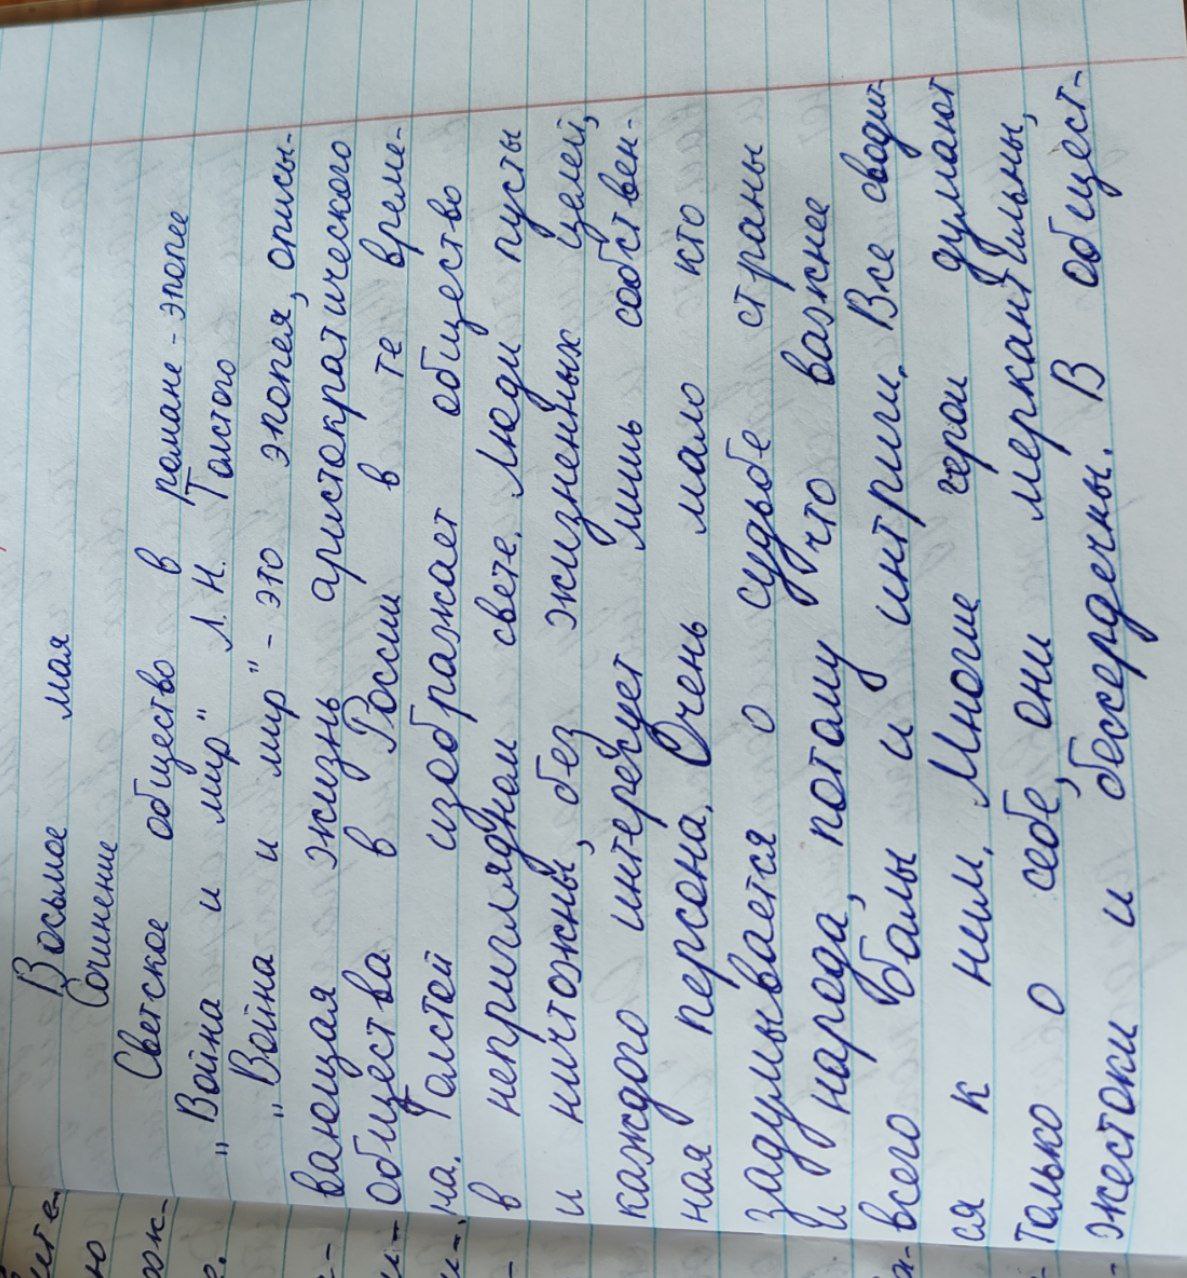 Восьмое мая
Сочинение
Светское общество в романе-эпопее
„Война и мир" Л.Н. Толстого
„Война и мир" - это эпопея, описы-
вающая жизнь аристократического
общества в России в те време-
на. Толстой изображает общество
в неприглядном свете. Люди пусты
и ничтожны, без жизненных целей,
каждого интересует лишь собствен-
ная персона. Очень мало кто
задумывается о судьбе страны
и народа, потому что важнее
всего балы и интриги. Все сводит-
ся к ним. Многие герои думают
только о себе, они меркантильны,
жестоки и бессердечны. В общест-